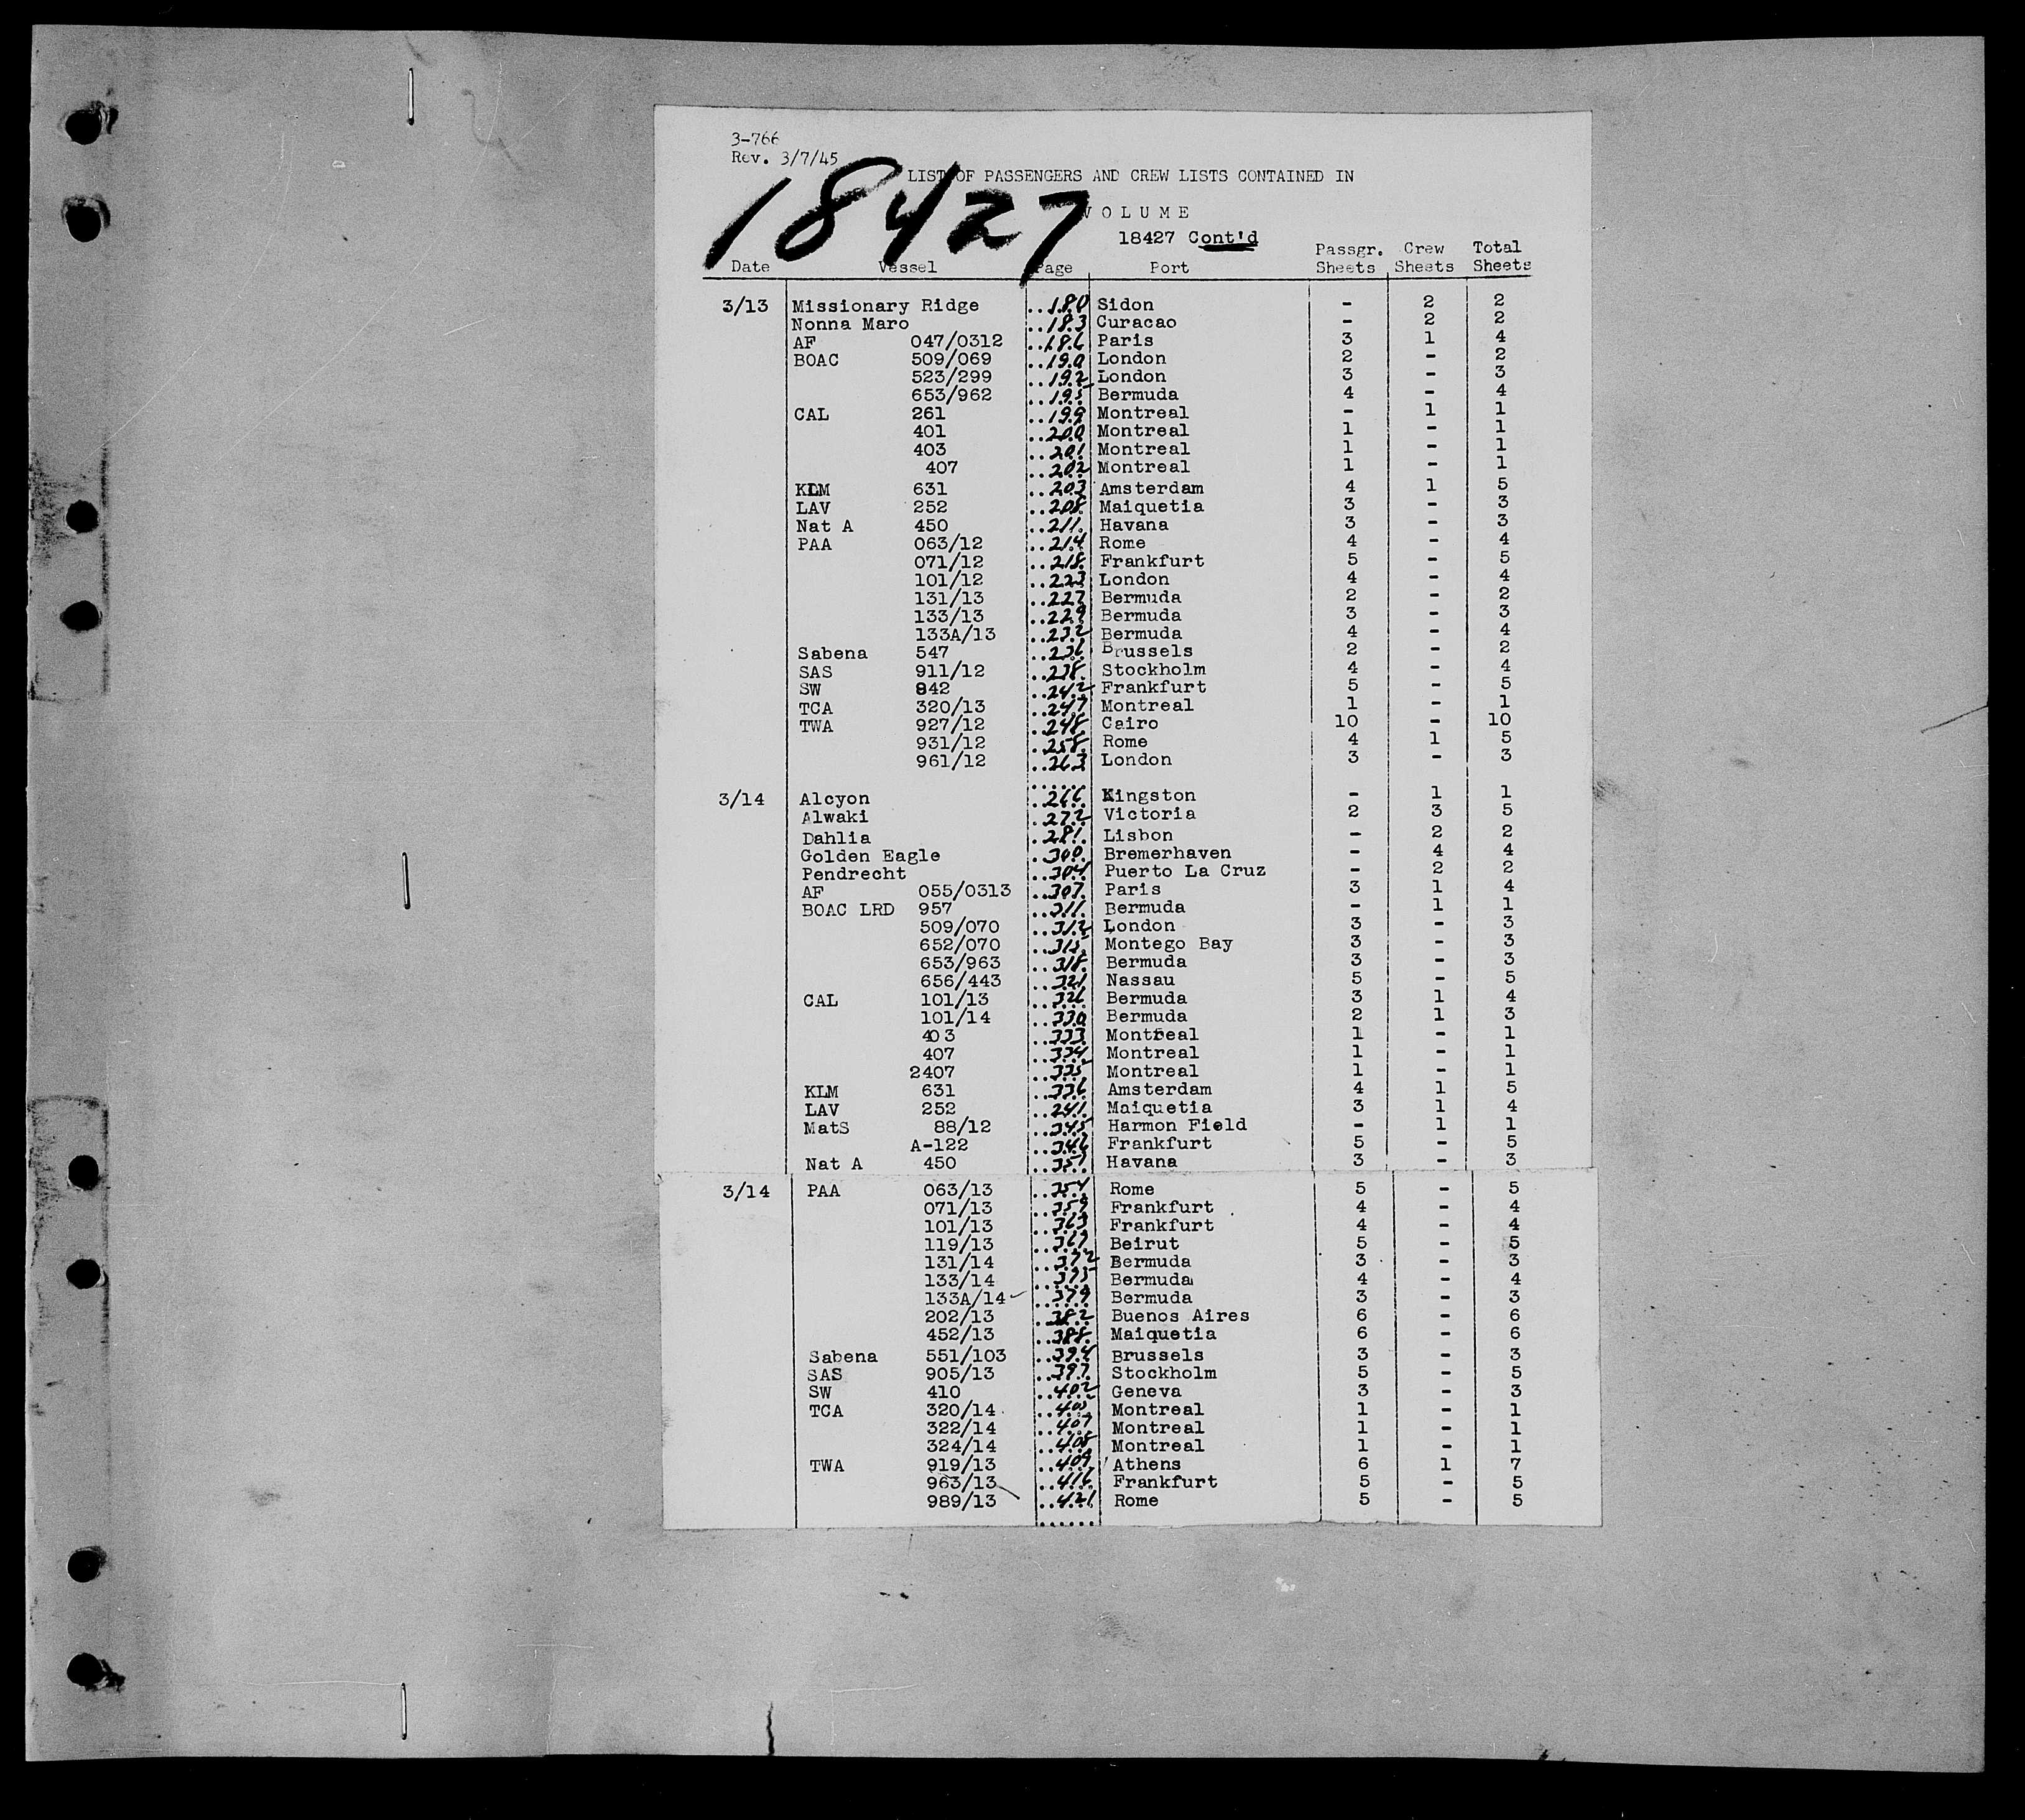 3-766
Rev. 3/7/45
LIST OF PASSENGERS AND CREW LISTS CONTAINED IN
18427
VOLUME
18427 Cont'd
Date Vessel Page Port Passgr. Sheets Crew Sheets Total Sheets
3/13 Missionary Ridge 180 Sidon - 2 2
Nonna Maro 183 Curacao - 2 2
AF 047/0312 186 Paris 3 1 4
BOAC 509/069 190 London 2 - 2
523/299 192 London 3 - 3
653/962 195 Bermuda 4 - 4
CAL 261 199 Montreal - 1 1
401 200 Montreal 1 - 1
403 201 Montreal 1 - 1
407 202 Montreal 1 - 1
KLM 631 203 Amsterdam 4 1 5
LAV 252 208 Maiquetia 3 - 3
Nat A 450 211 Havana 3 - 3
PAA 063/12 214 Rome 4 - 4
071/12 218 Frankfurt 5 - 5
101/12 223 London 4 - 4
131/13 227 Bermuda 2 - 2
133/13 229 Bermuda 3 - 3
133A/13 232 Bermuda 4 - 4
Sabena 547 236 Brussels 2 - 2
SAS 911/12 238 Stockholm 4 - 4
SW 842 242 Frankfurt 5 - 5
TCA 320/13 247 Montreal 1 - 1
TWA 927/12 248 Cairo 10 - 10
931/12 258 Rome 4 1 5
961/12 263 London 3 - 3
3/14 Alcyon 266 Kingston - 1 1
Alwaki 272 Victoria 2 3 5
Dahlia 281 Lisbon - 2 2
Golden Eagle 300 Bremerhaven - 4 4
Pendrecht 304 Puerto La Cruz - 2 2
AF 055/0313 307 Paris 3 1 4
BOAC LRD 957 311 Bermuda - 1 1
509/070 312 London 3 - 3
652/070 315 Montego Bay 3 - 3
653/963 318 Bermuda 3 - 3
656/443 321 Nassau 5 - 5
CAL 101/13 326 Bermuda 3 1 4
101/14 330 Bermuda 2 1 3
403 333 Montreal 1 - 1
407 334 Montreal 1 - 1
2407 335 Montreal 1 - 1
KLM 631 336 Amsterdam 4 1 5
LAV 252 241 Maiquetia 3 1 4
MatS 88/12 345 Harmon Field - 1 1
A-122 346 Frankfurt 5 - 5
Nat A 450 351 Havana 3 - 3
3/14 PAA 063/13 354 Rome 5 - 5
071/13 359 Frankfurt 4 - 4
101/13 363 Frankfurt 4 - 4
119/13 367 Beirut 5 - 5
131/14 372 Bermuda 3 - 3
133/14 375 Bermuda 4 - 4
133A/14 379 Bermuda 3 - 3
202/13 382 Buenos Aires 6 - 6
452/13 388 Maiquetia 6 - 6
Sabena 551/103 394 Brussels 3 - 3
SAS 905/13 397 Stockholm 5 - 5
SW 410 402 Geneva 3 - 3
TCA 320/14 405 Montreal 1 - 1
322/14 407 Montreal 1 - 1
324/14 408 Montreal 1 - 1
TWA 919/13 409 Athens 6 1 7
963/13 416 Frankfurt 5 - 5
989/13 421 Rome 5 - 5